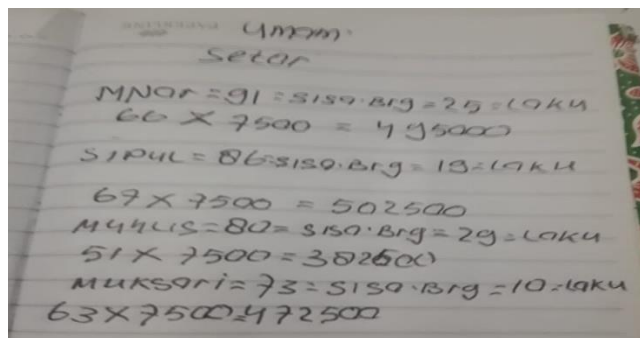 Umam.
Setar
MNar = 91 = sisa.Brg = 25 = Laku
66 X 7500 = 495000
SIPUL = 86 = sisa.Brg = 19 = Laku
67 X 7500 = 502500
MUHLIS = 80 = sisa.Brg = 29 = Laku
51 X 7500 = 382500
Muksari = 73 = sisa.Brg = 10 = Laku
63 X 7500 = 472500